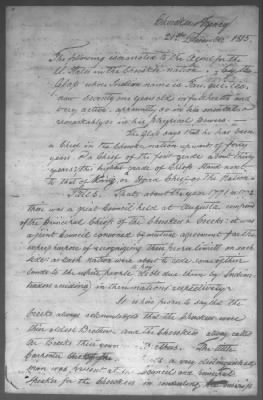 Cherokee Agency
21st December 1815.
The following was related to the Agent for the
U. States in the Cherokee nation, by the
Glass whose Indian name is
now seventy one years old in full health and
very active, apparently in his mental &
remarkable in his physical powers.
The Glass says that he has been
a Chief in the Cherokee nation upwards of forty
years, & a Chief of the first grade about thirty
years, the highest grade of Chiefs stand next
to that of King, or Upper Chief of the Nation
States, That about the year 1771 or 1772
there was a great Council held at Augusta, composed
of the principal Chiefs of the Cherokees & Creeks; it was
a joint Council convened by mutual agreement for the
purpose of recognizing their limits on each
side, as each nation were about to cede some of their
lands to the white people to pay debts due them by Indian
traders residing in their nations respectively.
It is here proper to say that the
Creeks always acknowledged that the Cherokees were
their eldest Brothers and the Cherokees always called
the Creeks their Brothers. The little
Carpenter a very distinguished
man was present at the Council and principal
Speaker for the Cherokees in conducting the